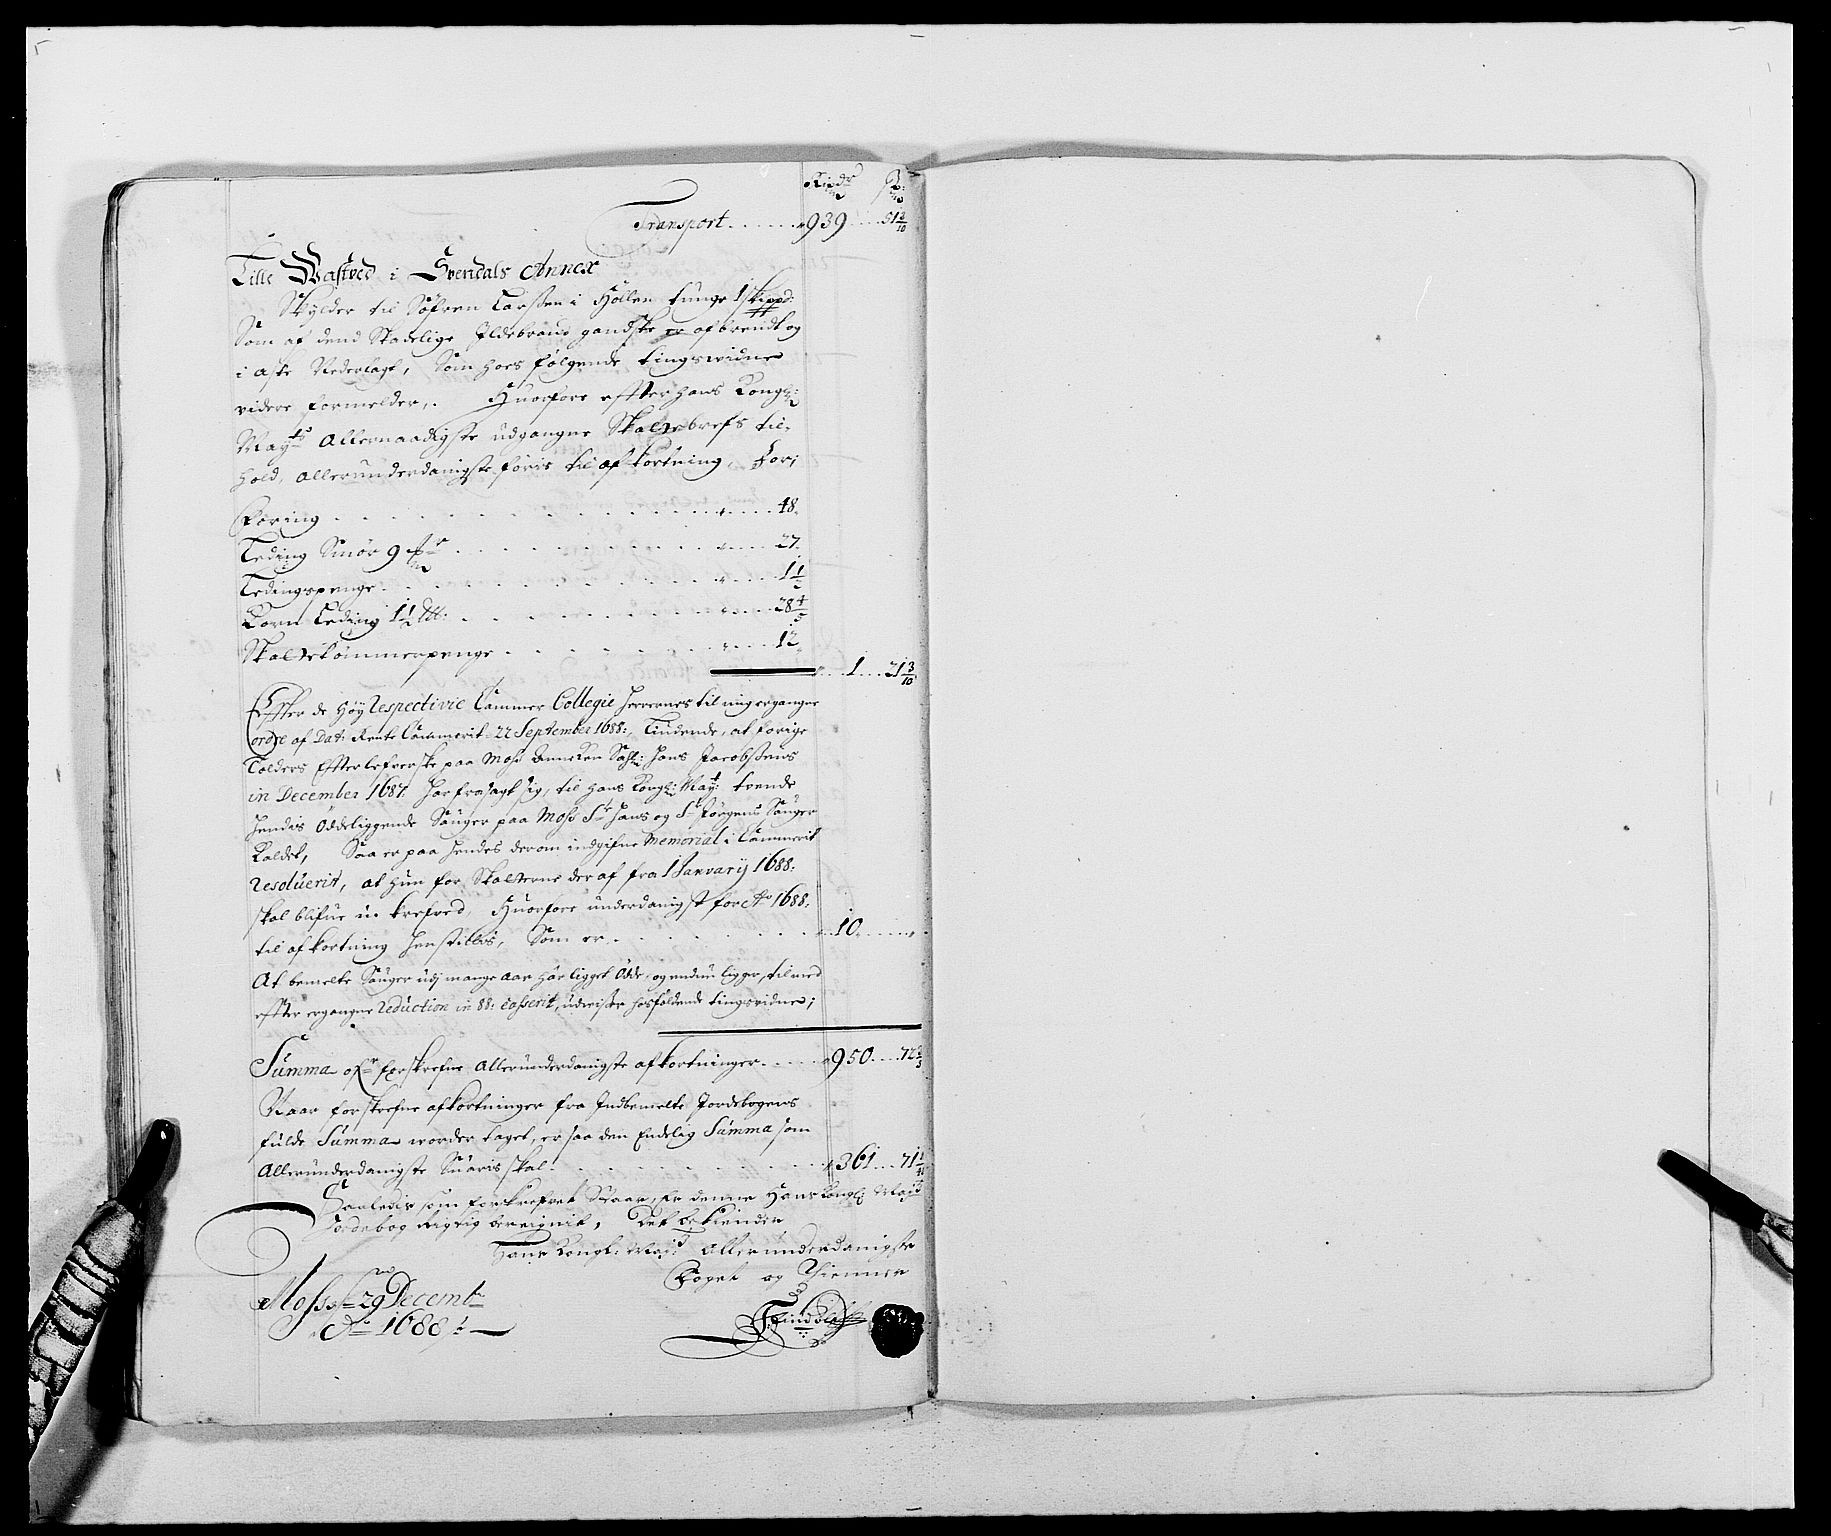 Rixdr ß:
Transport . . . . . . 939 . . . 51 3/10
Lille Wastved i Svendals Annex
Skylder til Söfren Larssen i Höllen tunge 1 skippd:
Som af dend Skadelige Ildebrand gandske er afbrendt og
i aske Nederlagt, Som hos følgende tingsvidne
videre formelder,. Huorfore effter hans Kongl:
Mayts Allernaadigste udgangne Skattebrefs til-
hold, allerunderdanigste føris til afkortning, For;
Foring . . . . . . 48.
Leding Smör 9 . . . . . . 27.
Ledingspenge . . . . . . 1 1/2
Korn Leding 1 1/2 Ltt: . . . . . . 28 4/5
Skattekömmerpenge . . . . . . 12.
1 . . . 21 3/10
Effter de Höy respectivie Cammer Collegie Herrernes til mig ergangne
ordre af Dat: Rente Cammerit 22 September 1688:, Liudende, at forige
Tolders Effterlefverske paa Moss Anneken Sahl: Hans Jacobssens
in December 1687: har frasagt sig, til hans Kongl: Mayt: trende
hendis Öddeliggende Sauger paa Moss Sr Hans og Sr Jörgens Sauger
Kaldet, Saa er paa hendes derom indgifne Memorial i Cammerit
resoluerit, at hun for Skatterne der af fra 1 January 1688:
skal blifue u-krefved, Huorfore underdanigst for Ao 1688:
til afkortning henstilles, Som er . . . . . . 10 . . .
At bemelte Sauger udj mange aar har ligget Ödde, og endnu ligger, til med
effter ergangne reduction in 88: Casserit, udviser hosfoldende tingsvidne;
Summa ofr forskrefne Allerunderdanigste afkortninger . . . 950 . . . 72 3/5
Naar forskrefne afkortninger fra Indbemelte Jordebogens
fulde Summa worder taget, er saa den Endelig Summa som
Allerunderdanigste Suaris skal . . . . . . 361 . . . 71
Saaledis som forskrefvet Staar, Er denne Hans Kongl: Mayts
Jordebog Rigtig bereignit, Det bekiender
Hans Kongl: Mayts Allerunderdanigste
Foget og Thienner
Moss 29 Decembr
Ao 1688